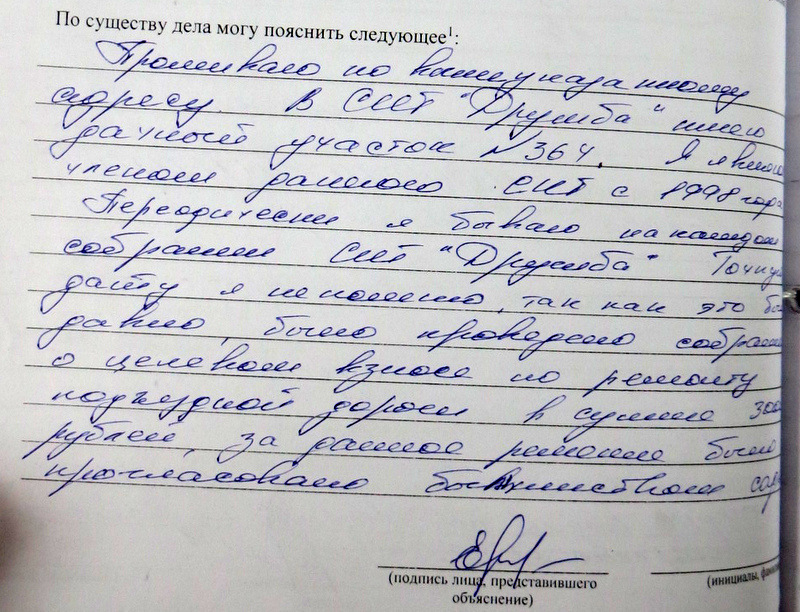 По существу дела могу пояснить следующее¹:
Проживаю по вышеуказанному
адресу. В СНТ "Дружба" имею
дачный участок №364. Я являю
членом данного СНТ с 1998 года
Переодически я бываю на каждом
собрании СНТ "Дружба" Точную
дату я не помню, так как это бы
давно, было проведено собрани
о целевом взносе по ремонту
подъездной дороги в сумме 3000
рублей, за данное решение было
прогласовано большинством
(подпись лица, представившего
объяснение)
(инициалы,